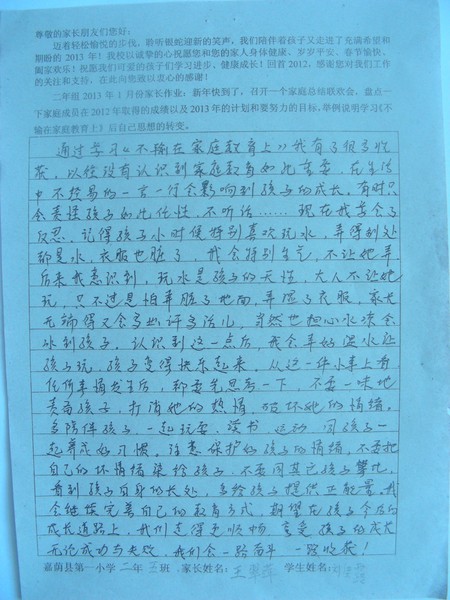 尊敬的家长朋友们您好:
迈着轻松愉悦的步伐，聆听银蛇迎新的笑声，我们陪伴着孩子又走进了充满希望和
期盼的 2013 年！我校以诚挚的心祝愿您和您的家人身体健康、岁岁平安、春节愉快、
阖家欢乐！祝愿我们可爱的孩子们学习进步、健康成长！回首 2012，感谢您对我们工作
的关注和支持，在此向您致以衷心的感谢！
二年组 2013 年 1 月份家长作业，新年快到了，召开一个家庭总结联欢会，盘点一
下家庭成员在 2012 年取得的成绩以及 2013 年的计划和要努力的目标，举例说明学习《不
输在家庭教育上》后自己思想的转变。
通过学习《不输在家庭教育上》我有了很多收
获，以往没有认识到家庭教育如此重要，在生活
中不经意的一言一行会影响到孩子的成长。有时只
会责怪孩子如此任性，不听话……现在我学会了
反思。记得孩子小时候特别喜欢玩水，弄得到处
都是水，衣服也脏了，我会特别生气，不让她弄
后来我意识到，玩水是孩子的天性，大人不让她
玩，只不过是怕弄脏了地面，弄湿了衣服，家长
无端得又会多出许多活儿，当然也担心水凉会
冰到孩子。认识到这一点后，我会弄好温水让
孩子玩，孩子变得快乐起来。从这一件小事上看
任何事情发生后，都要先思考一下，不要一味地
责备孩子，打消她的热情，破坏她的情绪。
多陪伴孩子，一起玩耍、读书、运动，同孩子一
起养成好习惯。注意保护好孩子的情绪，不要把
自己的坏情绪染给孩子，不要同其它孩子攀比，
看到孩子自身的长处，多给孩子提供正能量。我
会继续完善自己的教育方式，期望在孩子今后的
成长道路上，我们走得更顺畅，享受孩子的成长
无论成功与失败，我们会一路前平，一路收获！
嘉荫县第一小学二年五班 家长姓名: 王 学生姓名: